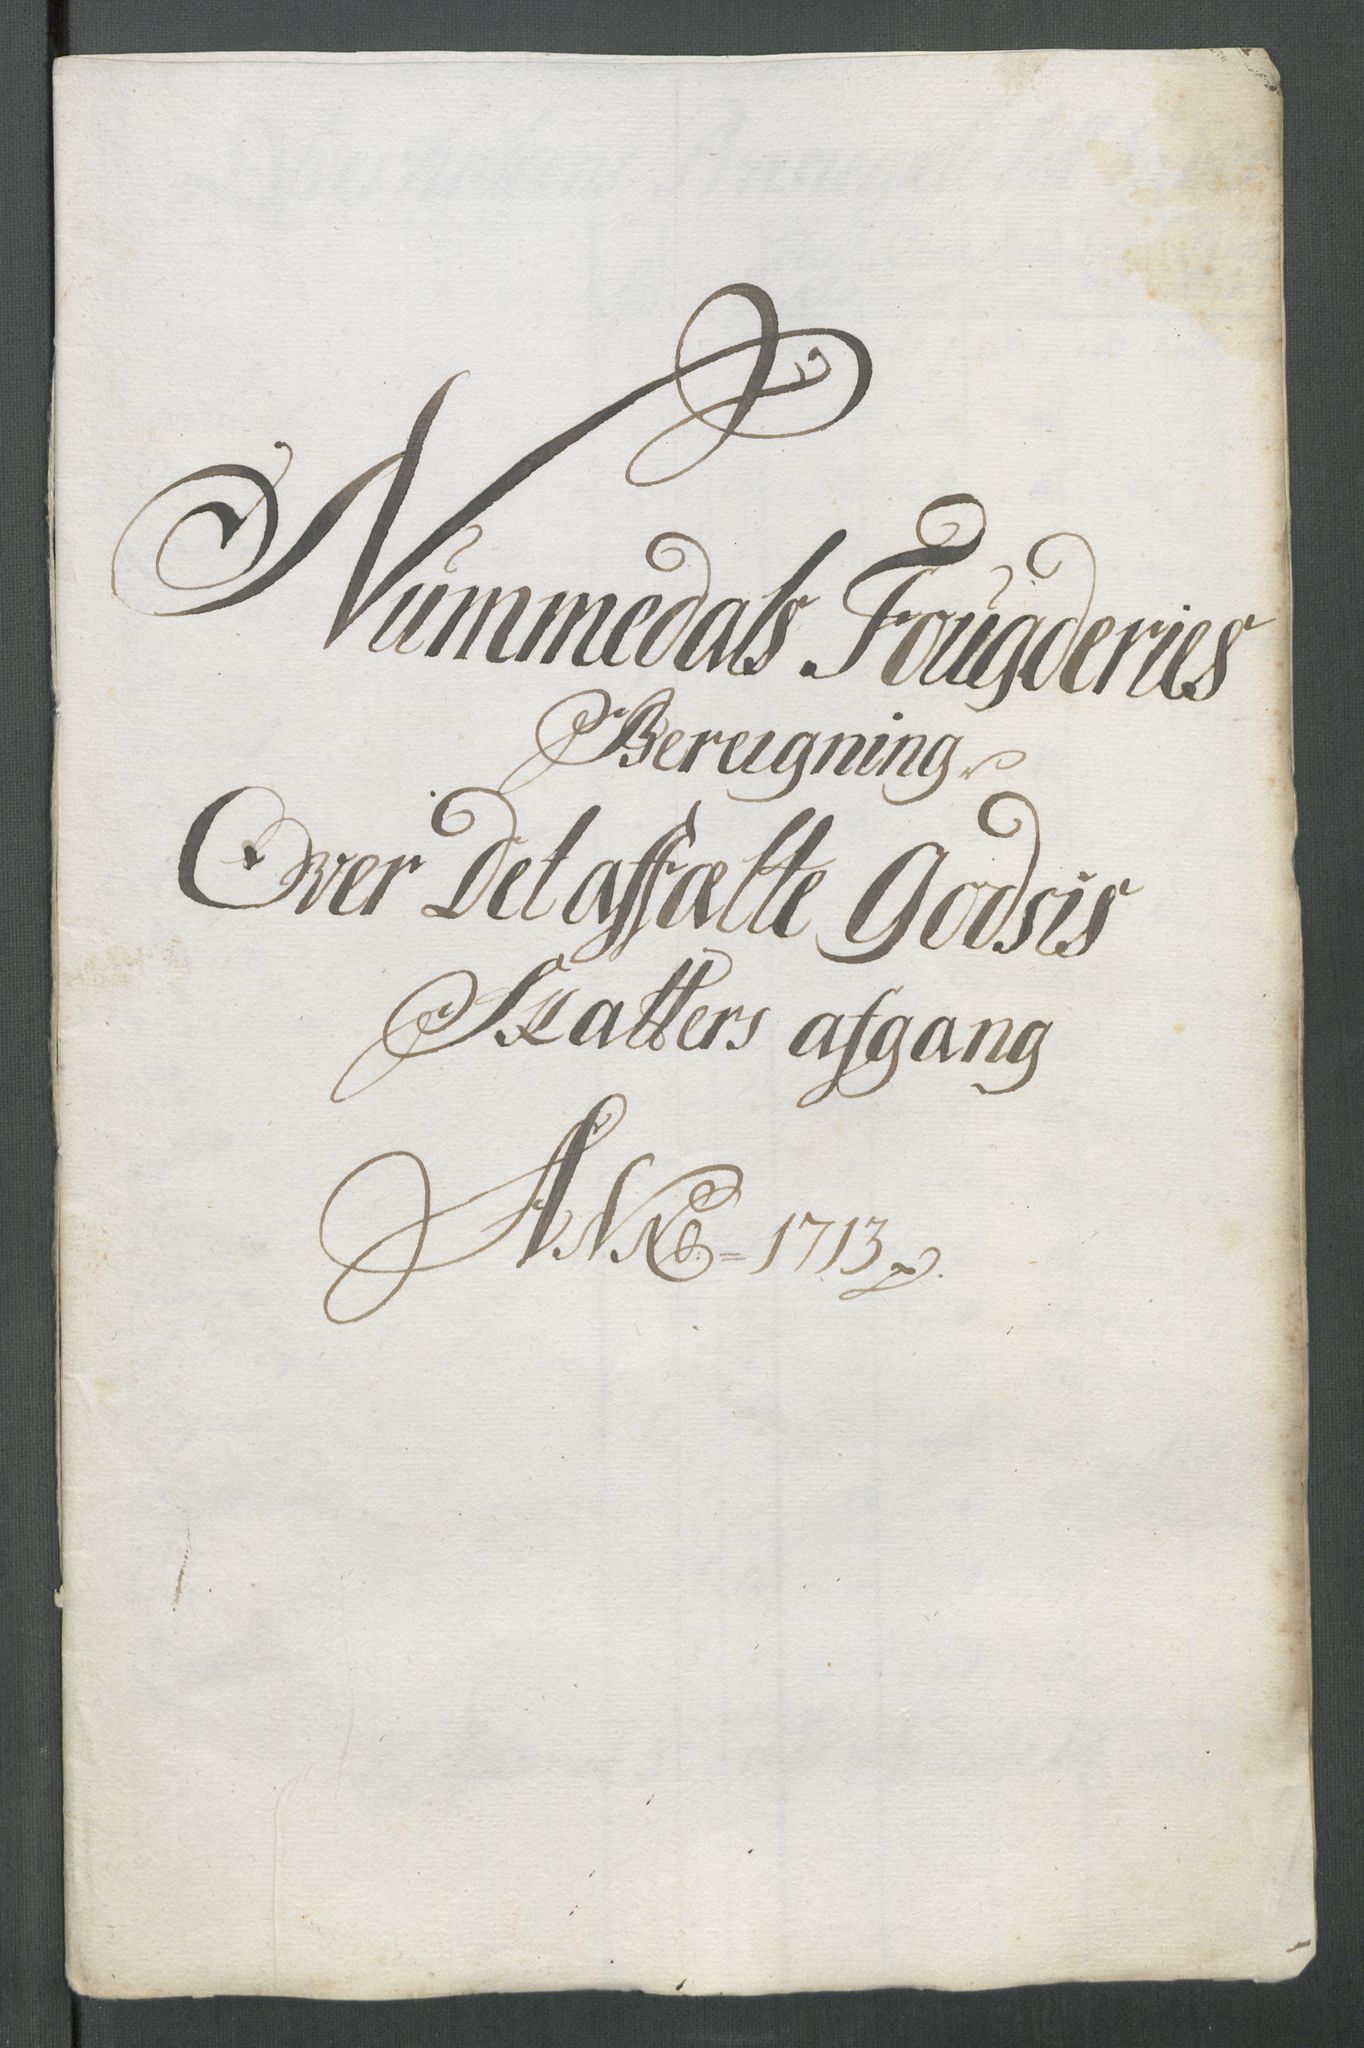 Nummedals Fougderies
Bereigning
Over Det affælte Godsis
Skatters afgang
ANNO = 1713